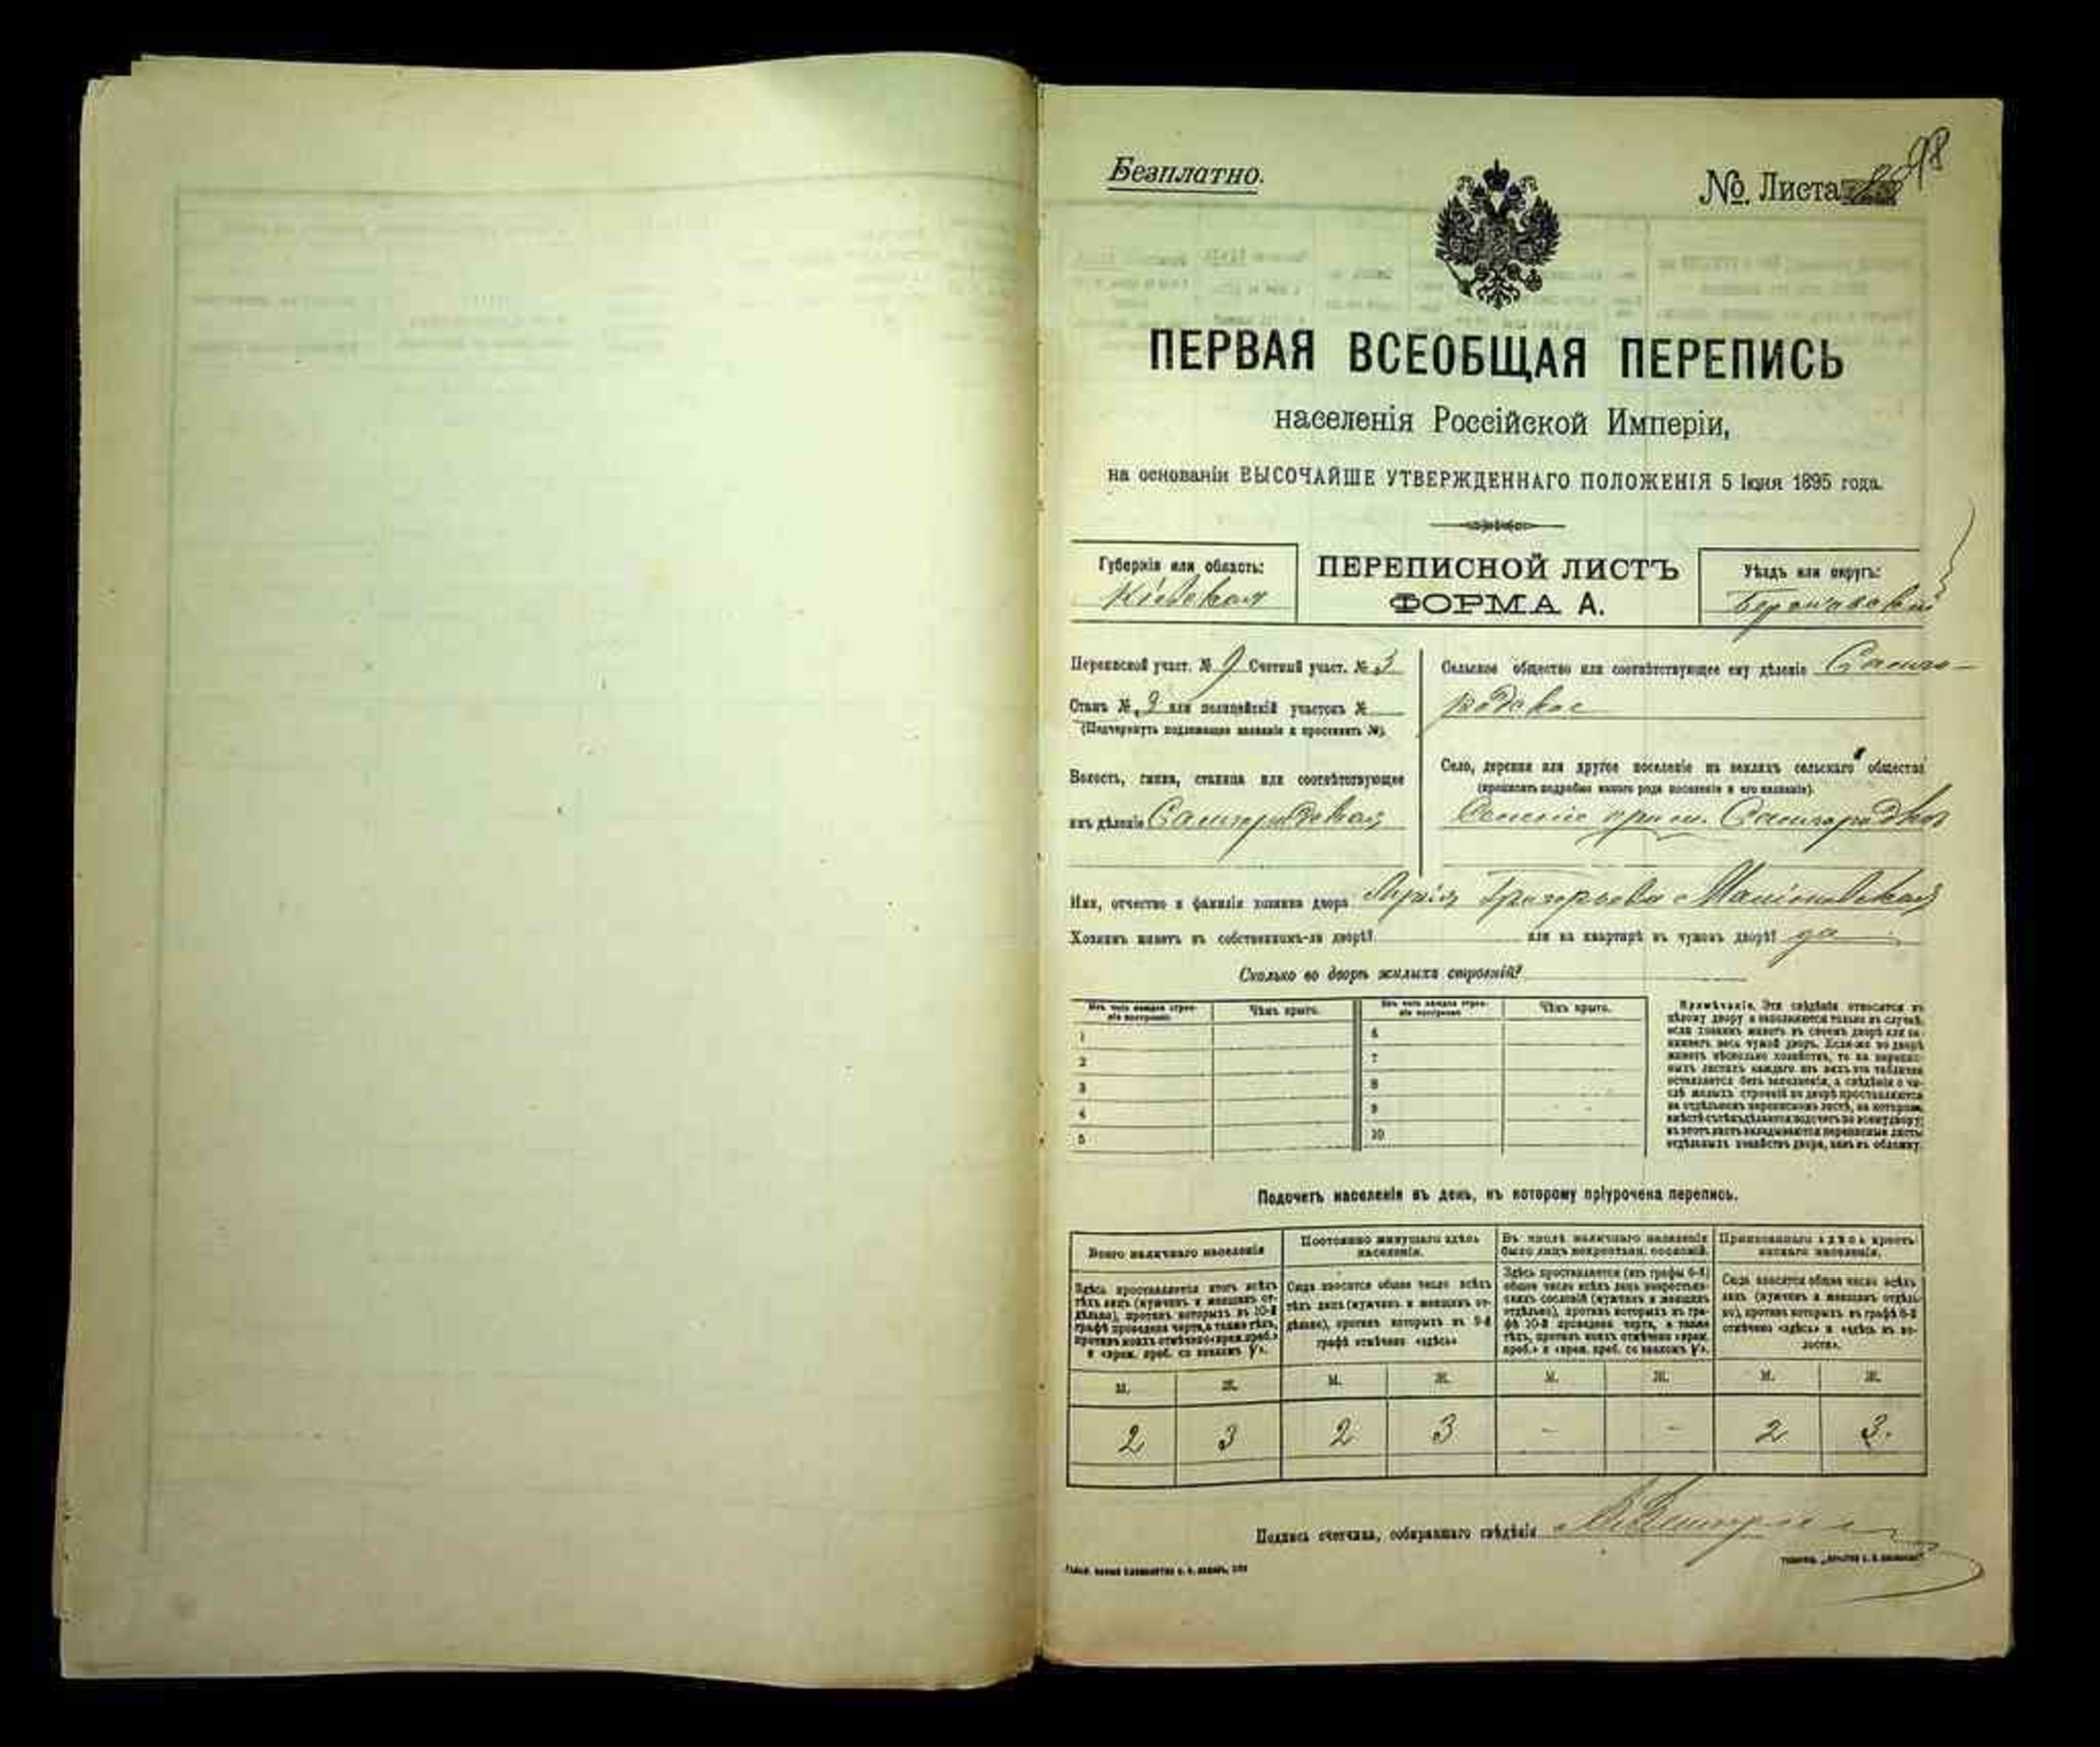 Безплатно.
№ Листа 98
ПЕРВАЯ ВСЕОБЩАЯ ПЕРЕПИСЬ
населенія Россійской Имперіи,
на основаніи ВЫСОЧАЙШЕ УТВЕРЖДЕННАГО ПОЛОЖЕНІЯ 5 Іюня 1895 года.
Губернія или область:
Кіевская
ПЕРЕПИСНОЙ ЛИСТЪ
ФОРМА А.
Уѣздъ или округъ:
Бердичевскій
Переписной участ. № 9 Счетный участ. № 3
Станъ № 3 или полицейскій участокъ №
(Подчеркнуть подлежащее названіе и проставить №).
Волость, гмина, станица или соотвѣтствующее
имъ дѣленіе Самгородская
Сельское общество или соотвѣтствующее ему дѣленіе Самго-
родское
Село, деревня или другое поселеніе на земляхъ сельскаго общества
(прописать подробно какого рода поселеніе и его названіе).
Селеніе при м. Самгородкѣ
Имя, отчество и фамилія хозяина двора Григорьева
Хозяинъ живетъ въ собственномъ-ли дворѣ? или на квартирѣ въ чужомъ дворѣ? да
Сколько во дворѣ жилыхъ строеній?
Изъ чего каждое строе-
ніе построено.
Чѣмъ крыто.
Изъ чего каждое строе-
ніе построено
Чѣмъ крыто.
1 6
2 7
3 8
4 9
5 10
Примѣчаніе. Эти свѣдѣнія относятся къ
цѣлому двору и заполняются только въ случаѣ,
если хозяинъ живетъ въ своемъ дворѣ или за-
нимаетъ весь чужой дворъ. Если-же во дворѣ
живетъ нѣсколько хозяйствъ, то на перепис-
ныхъ листахъ каждаго изъ нихъ эта табличка
оставляется безъ заполненія, а свѣдѣнія о чи-
слѣ жилыхъ строеній во дворѣ проставляются
на отдѣльномъ переписномъ листѣ, на которомъ
вмѣстѣ съ тѣмъ дѣлается подсчетъ по всему двору;
въ этотъ листъ вкладываются переписные листы
отдѣльныхъ хозяйствъ двора, какъ въ обложку.
Подсчетъ населенія въ день, къ которому пріурочена перепись.
Всего наличнаго населенія
Постоянно живущаго здѣсь
населенія.
Въ числѣ наличнаго населенія
было лицъ некрестьян. сословій.
Приписаннаго здѣсь кресть-
янскаго населенія.
Здѣсь проставляется итогъ всѣхъ
тѣхъ лицъ (мужчинъ и женщинъ от-
дѣльно), противъ которыхъ въ 10-й
графѣ проведена черта, а также тѣхъ,
противъ коихъ отмѣчено «врем. преб.»
и «врем. преб. со знакомъ V».
Сюда вносится общее число всѣхъ
тѣхъ лицъ (мужчинъ и женщинъ от-
дѣльно), противъ которыхъ въ 9-й
графѣ отмѣчено «здѣсь»
Здѣсь проставляется (изъ графы 6-й)
общее число всѣхъ лицъ некрестьян-
скихъ сословій (мужчинъ и женщинъ
отдѣльно), противъ которыхъ въ гра-
фѣ 10-й проведена черта, а также
тѣхъ, противъ коихъ отмѣчено «врем.
преб.» и «врем. преб. со знакомъ V».
Сюда вносится общее число всѣхъ
лицъ (мужчинъ и женщинъ отдѣль-
но), противъ которыхъ въ графѣ 8-й
отмѣчено «здѣсь» и «здѣсь въ во-
лости».
М. Ж. М. Ж. М. Ж. М. Ж.
2 3 2 3 - - 2 3.
Подпись счетчика, собиравшаго свѣдѣнія